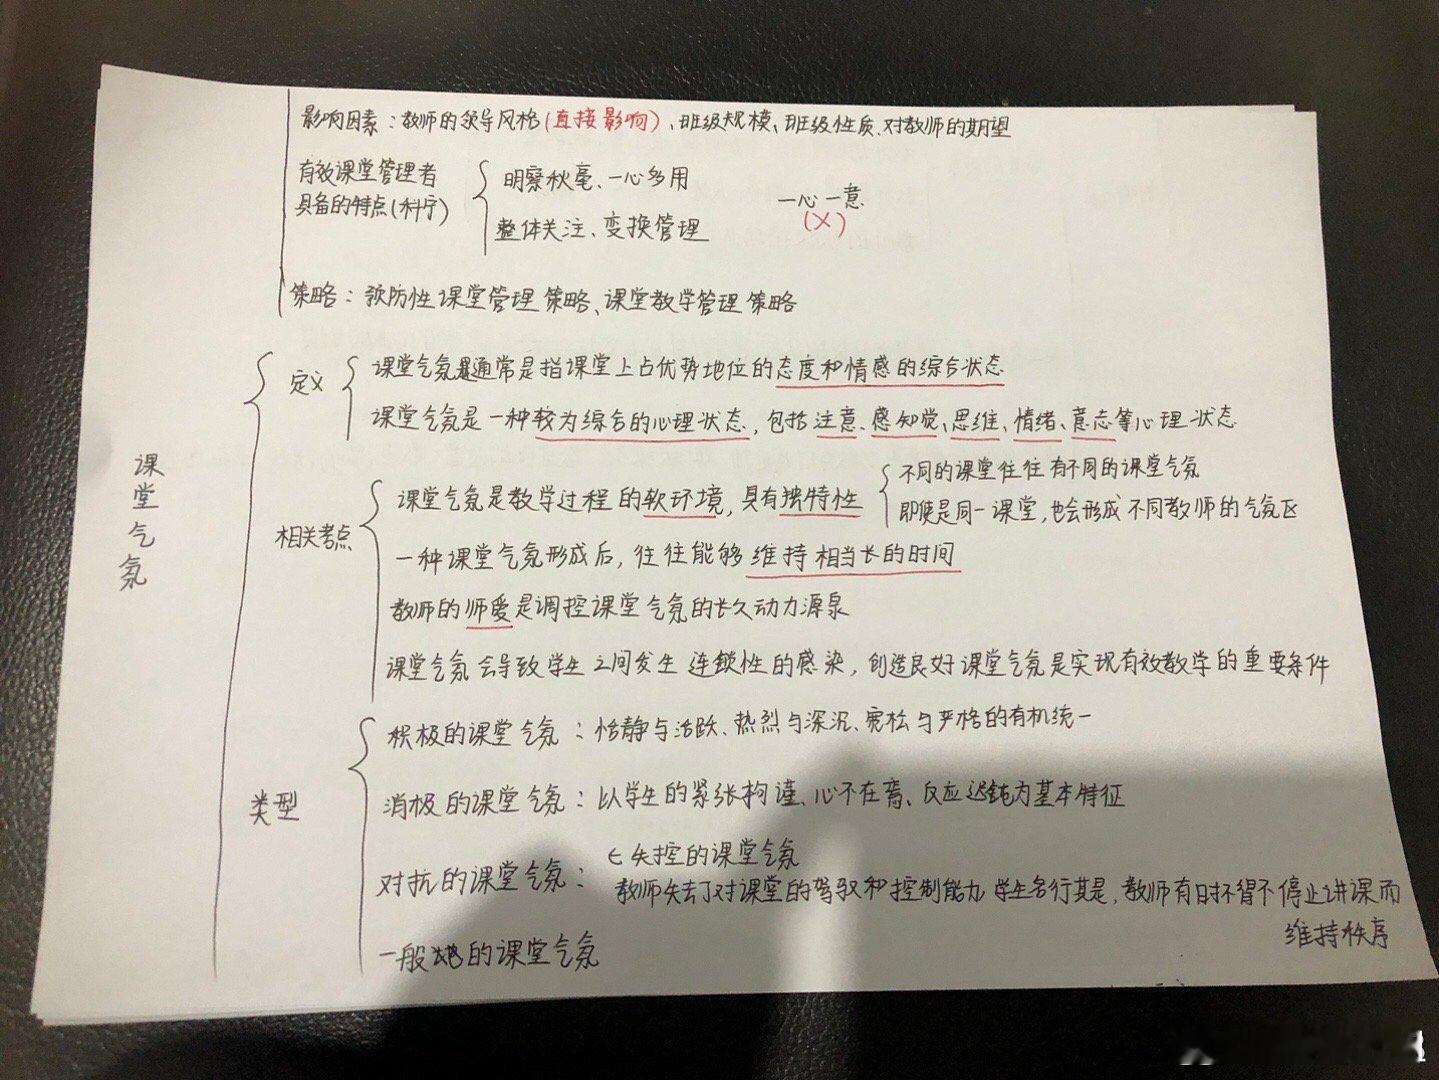 影响因素：教师的领导风格(直接影响)、班级规模、班级性质、对教师的期望
有效课堂管理者
具备的特点(科宁)
明察秋毫、一心多用
整体关注、变换管理
一心一意
(X)
策略：预防性课堂管理策略、课堂教学管理策略
课堂气氛
定义
课堂气氛通常是指课堂上占优势地位的态度和情感的综合状态
课堂气氛是一种较为综合的心理状态，包括注意、感知觉、思维、情绪、意志等心理状态
相关考点
课堂气氛是教学过程的软环境，具有独特性
不同的课堂往往有不同的课堂气氛
即使是同一课堂，也会形成不同教师的气氛区
一种课堂气氛形成后，往往能够维持相当长的时间
教师的师爱是调控课堂气氛的长久动力源泉
课堂气氛会导致学生之间发生连锁性的感染，创造良好课堂气氛是实现有效教学的重要条件
类型
积极的课堂气氛：恬静与活跃、热烈与深沉、宽松与严格的有机统一
消极的课堂气氛：以学生的紧张拘谨、心不在焉、反应迟钝为基本特征
对抗的课堂气氛：
失控的课堂气氛
教师失去了对课堂的驾驭和控制能力 学生各行其是，教师有时不得不停止讲课而
维持秩序
一般的课堂气氛